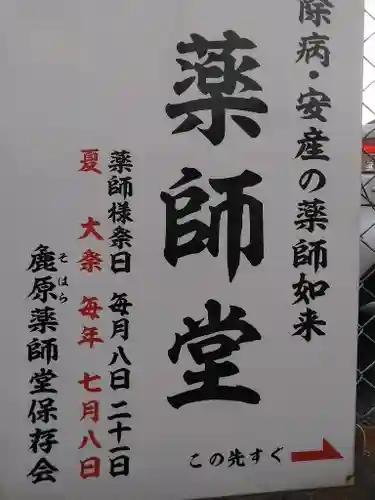 除病・安産の薬師如来
薬師堂
薬師様祭日 毎月八日 二十一日
夏 大祭 毎年 七月八日
そはら
鹿原薬師堂保存会
この先すぐ